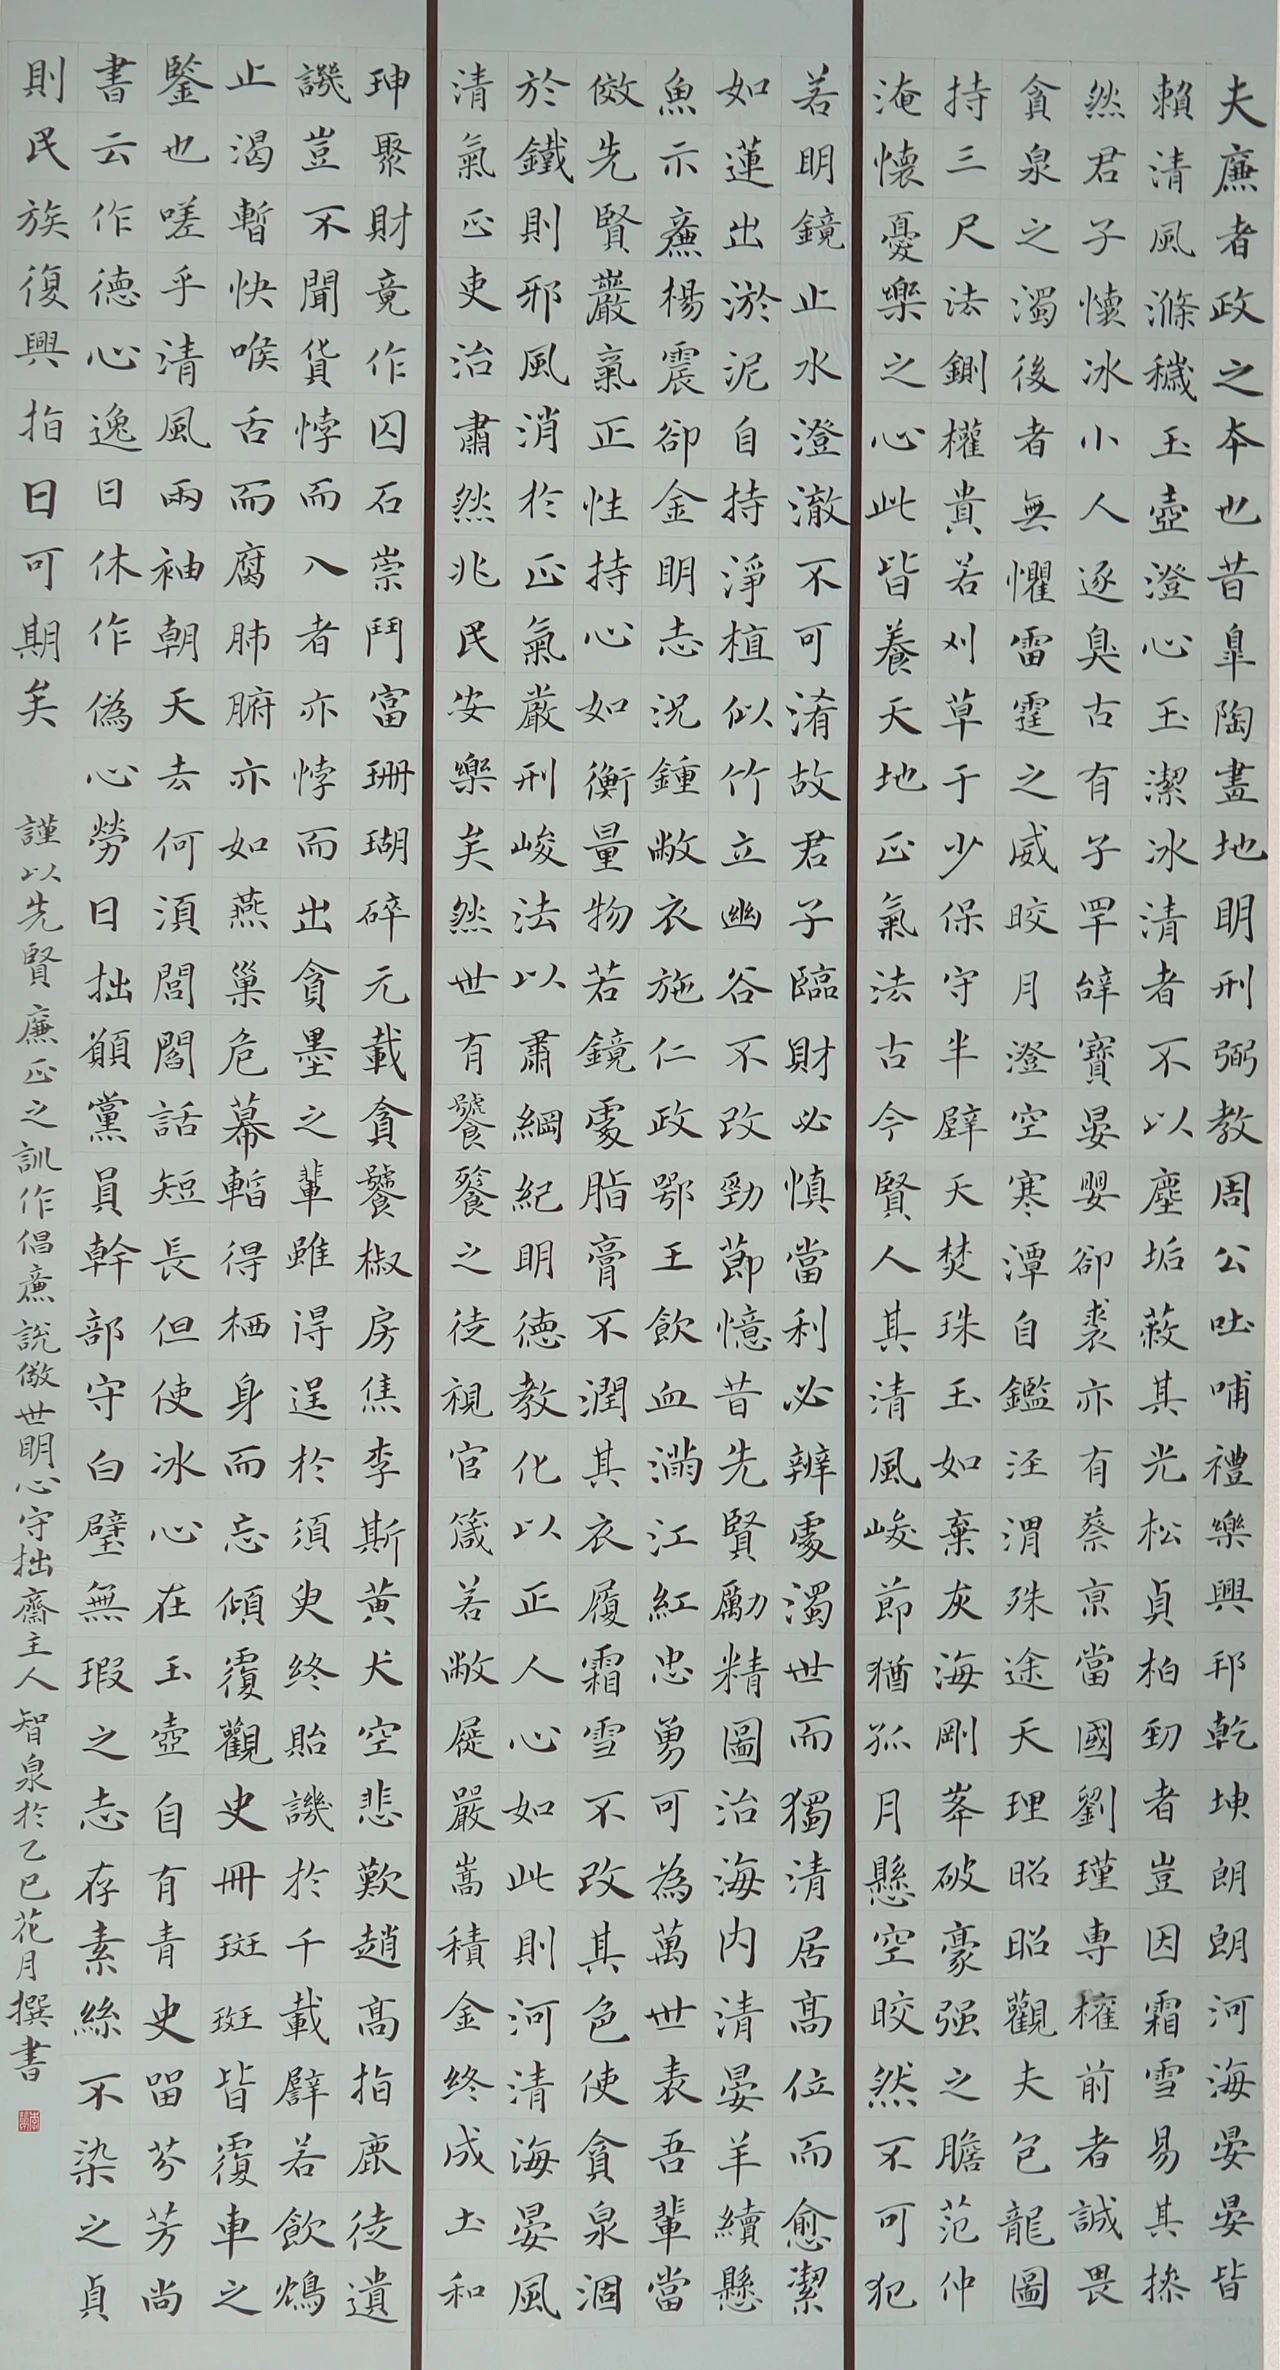 夫廉者政之本也昔皐陶畫地明刑弼教周公吐哺禮樂興邦乾坤朗朗河海晏晏皆
賴清風滌穢玉壺澄心玉潔冰清者不以塵垢蔽其光松貞柏勁者豈因霜雪易其操
然君子懷冰小人逐臭古有子罕辭寶晏嬰卻裘亦有蔡京當國劉瑾專權前者誠畏
貪泉之濁後者無懼雷霆之威皎月澄空寒潭自鑑涇渭殊途天理昭昭觀夫包龍圖
持三尺法鍘權貴若刈草于少保守半壁天焚珠玉如棄灰海剛峯破豪强之膽范仲
淹懷憂樂之心此皆養天地正氣法古今賢人其清風峻節猶孤月懸空皎然不可犯
若明鏡止水澄澈不可淆故君子臨財必慎當利必辨處濁世而獨清居高位而愈潔
如蓮出淤泥自持淨植似竹立幽谷不改勁節憶昔先賢勵精圖治海內清晏羊續懸
魚示廉楊震卻金明志況鍾敝衣施仁政鄂王飲血滿江紅忠勇可為萬世表吾輩當
傚先賢嚴氣正性持心如衡量物若鏡處脂膏不潤其衣履霜雪不改其色使貪泉涸
於鐵則邪風消於正氣嚴刑峻法以肅綱紀明德教化以正人心如此則河清海晏風
清氣正吏治肅然兆民安樂矣然世有饕餮之徒視官箴若敝屣嚴嵩積金終成土和
珅聚財竟作囚石崇鬥富珊瑚碎元載貪饕椒房焦李斯黃犬空悲歎趙高指鹿徒遺
譏豈不聞貨悖而入者亦悖而出貪墨之輩雖得逞於須臾終貽譏於千載譬若飲鴆
止渴暫快喉舌而腐肺腑亦如燕巢危幕暫得栖身而忘傾覆觀史冊斑斑皆覆車之
鑒也嗟乎清風兩袖朝天去何須閭閻話短長但使冰心在玉壺自有青史留芬芳尚
書云作德心逸日休作偽心勞日拙願黨員幹部守白璧無瑕之志存素絲不染之貞
則民族復興指日可期矣
謹以先賢廉正之訓作倡廉說儆世明心守拙齋主人智泉於乙巳花月撰書